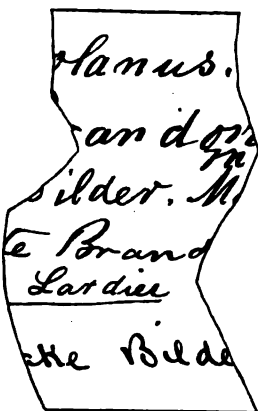 olanus.
andom
m
Bilder. M
te Brand
Lardiee
cke Bilde